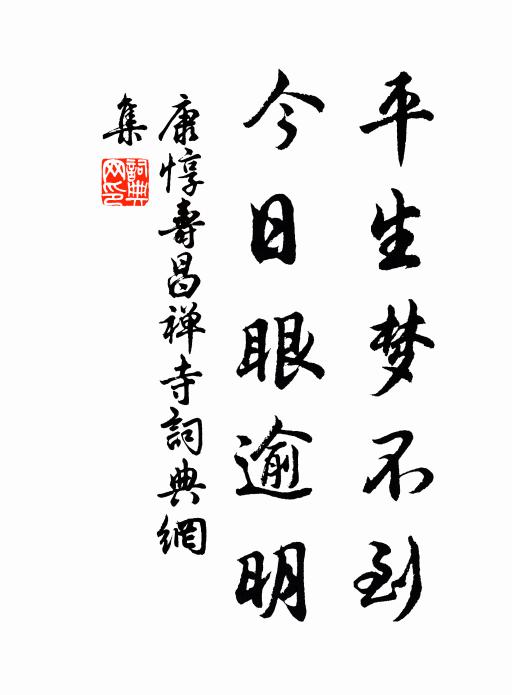 平生梦不到
今日眼逾明
康惇壽昌禅寺詞典網
集
詞典
网印